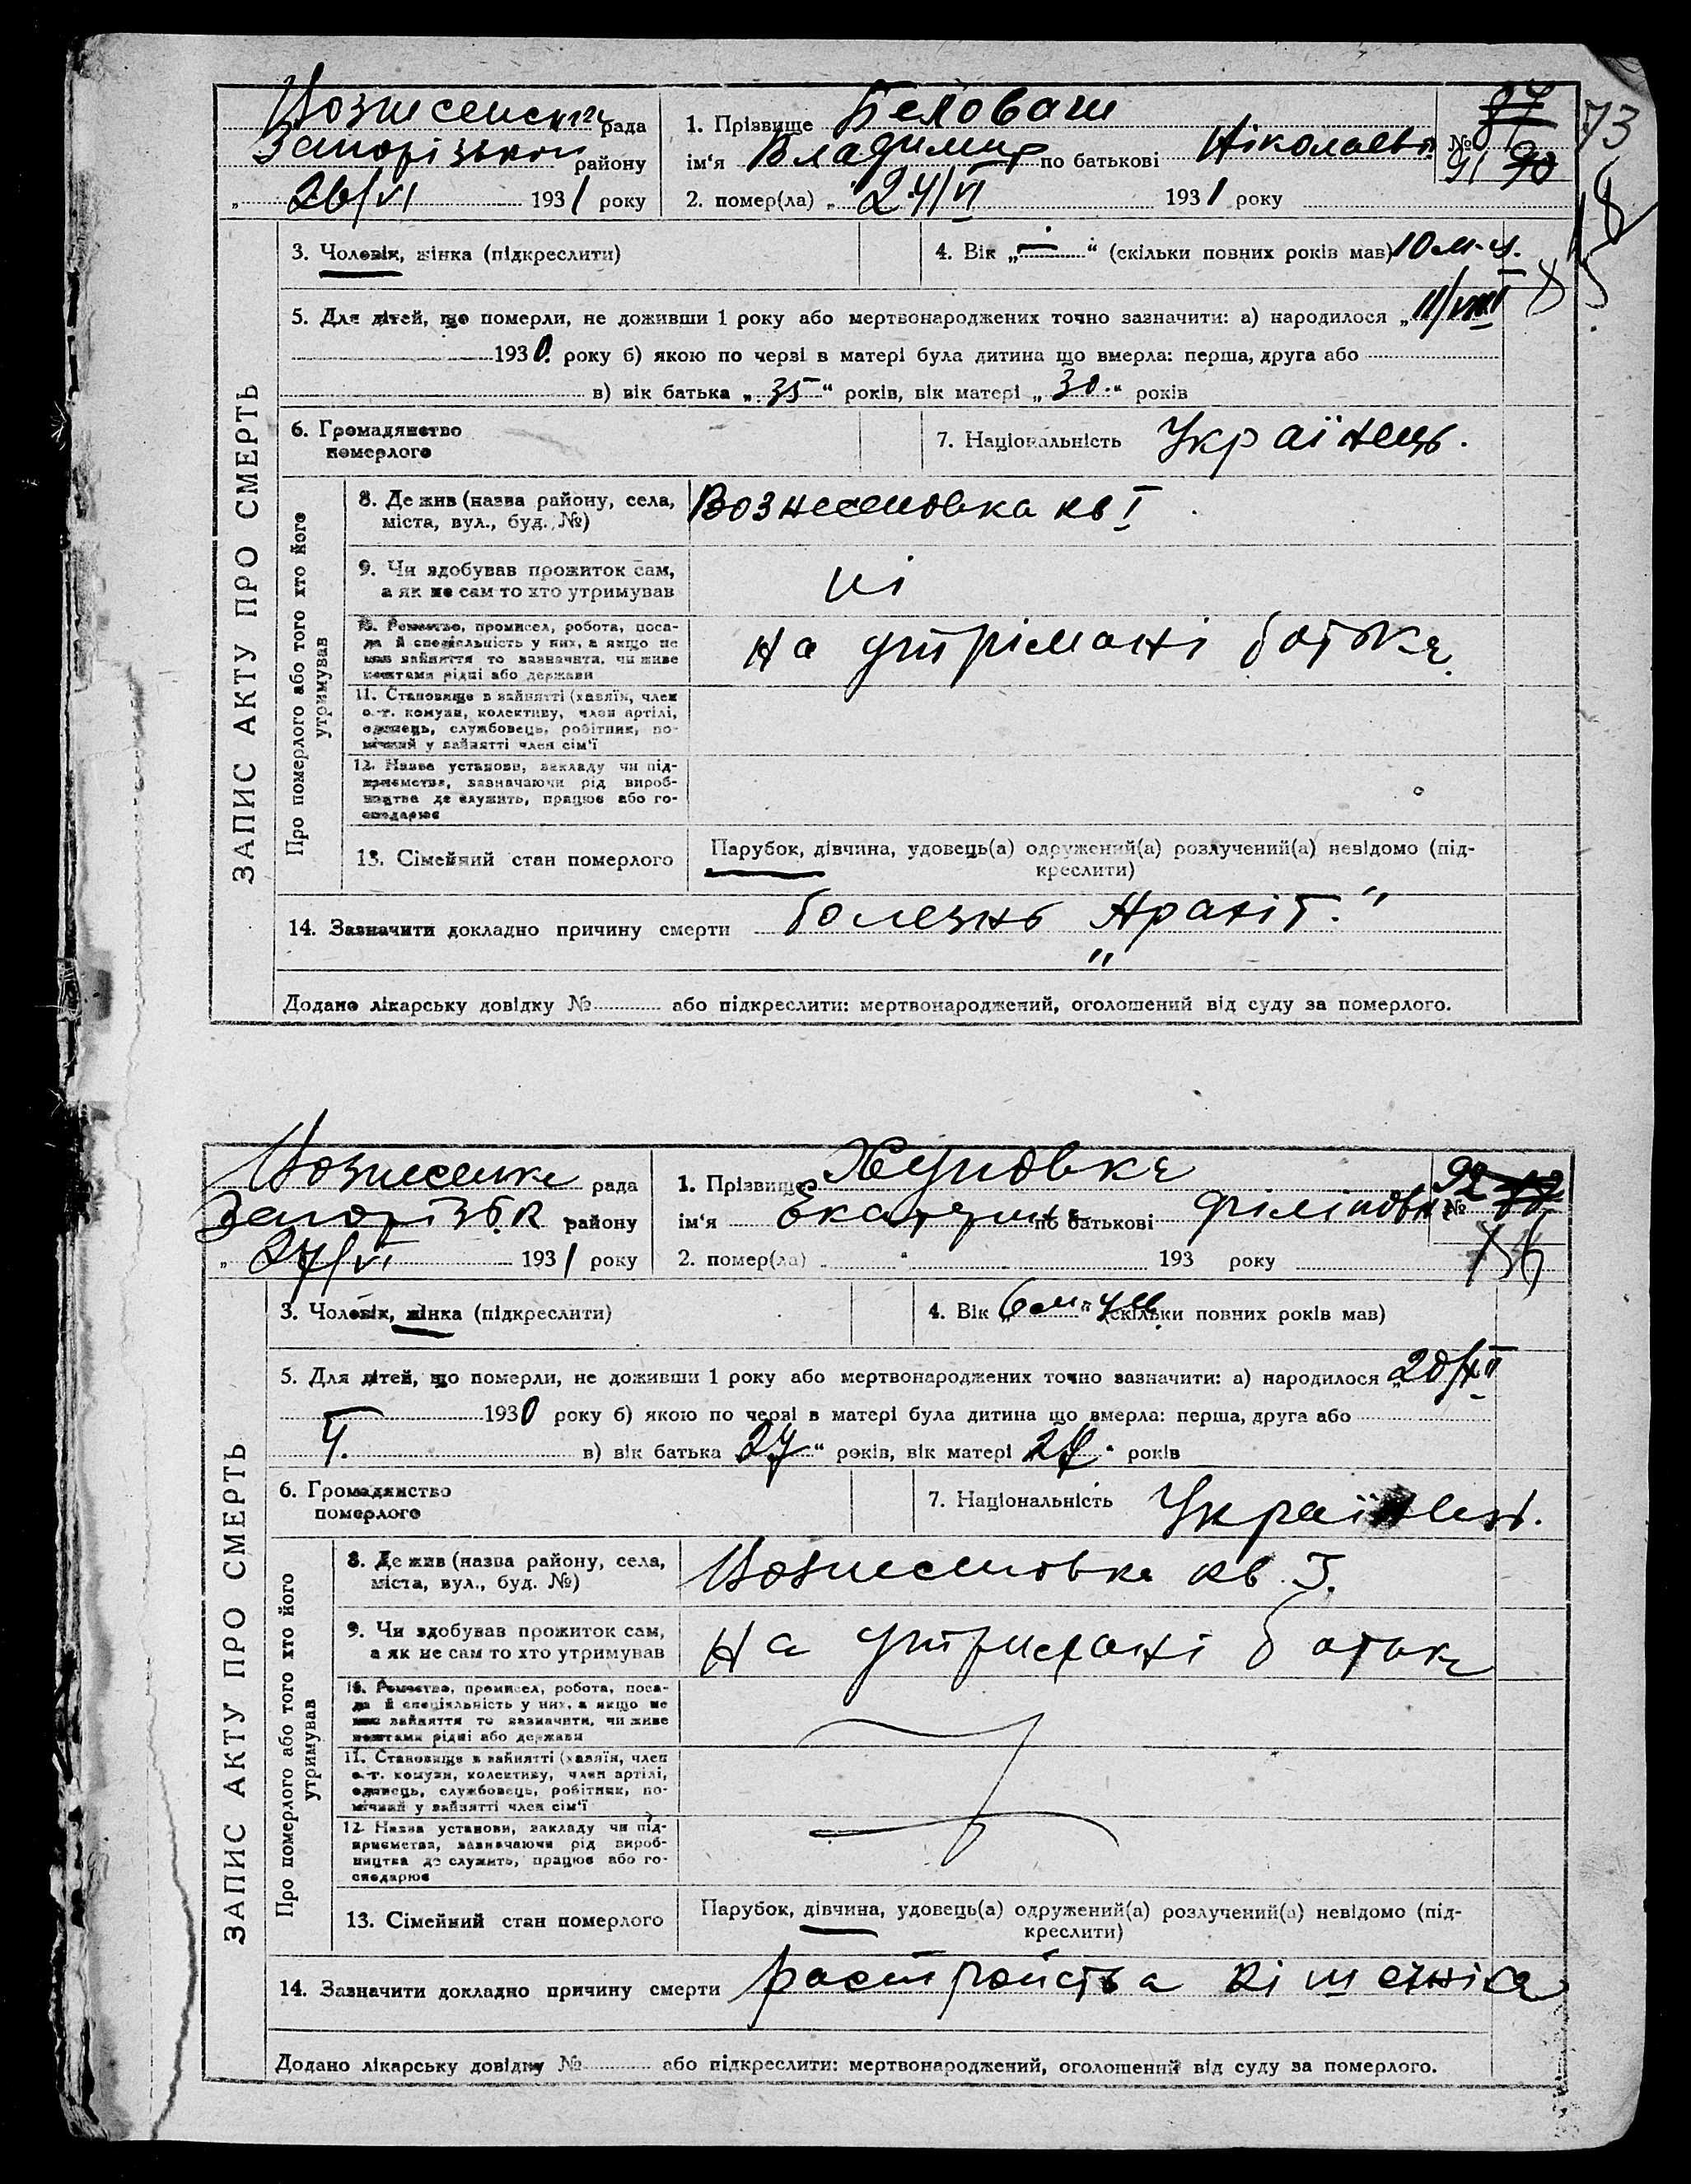 73
Вознесенська рада
Запорізького району
„ 26/VI 1931 року
1. Прізвище Беловаш
ім'я Владимир по батькові Ніколаєв.
2. помер(ла) „ 24/VI 1931 року
87
№
91 90
18
3. Чоловік, жінка (підкреслити)
4. Вік „ — “ (скільки повних років мав) 10 м-ц.
5. Для дітей, що померли, не доживши 1 року або мертвонароджених точно зазначити: а) народилося „ 11/VIII
1930. року б) якою по черзі в матері була дитина що вмерла: перша, друга або
в) вік батька „ 35 “ років, вік матері „ 30 “ років
6. Громадянство
померлого
7. Національність Українець.
ЗАПИС АКТУ ПРО СМЕРТЬ
Про померлого або того хто його
утримував
8. Де жив (назва району, села,
міста, вул., буд. №)
Вознесеновка кв I
9. Чи здобував прожиток сам,
а як не сам то хто утримував
ні
10. Ремество, промисел, робота, поса-
да й спеціяльність у них, а якщо не
мав зайняття то зазначити, чи живе
коштами рідні або держави
на утрімані батька
11. Становище в зайнятті (хазяїн, член
с.-г. комуни, колективу, член артілі,
одинець, службовець, робітник, по-
мічний у зайнятті член сім'ї
12. Назва установи, закладу чи під-
приємства, зазначаючи рід вироб-
ництва де служить, працює або го-
сподарює
13. Сімейний стан померлого
Парубок, дівчина, удовець(а) одружений(а) розлучений(а) невідомо (під-
креслити)
14. Зазначити докладно причину смерти болезнь
Додано лікарську довідку № або підкреслити: мертвонароджений, оголошений від суду за померлого.
Вознесенка рада
Запорізьк району
„ 27/VI 1931 року
1. Прізвище
ім'я Екатерина по батькові Філіповн
2. помер(ла) „ “ 193 року
92
№
3. Чоловік, жінка (підкреслити)
4. Вік „ 6 м-ц “ (скільки повних років мав)
5. Для дітей, що померли, не доживши 1 року або мертвонароджених точно зазначити: а) народилося „ 20/XII
1930 року б) якою по черзі в матері була дитина що вмерла: перша, друга або
в) вік батька „ 27 “ років, вік матері „ “ років
6. Громадянство
померлого
7. Національність Українец.
ЗАПИС АКТУ ПРО СМЕРТЬ
Про померлого або того хто його
утримував
8. Де жив (назва району, села,
міста, вул., буд. №)
Вознесеновка кв. I.
9. Чи здобував прожиток сам,
а як не сам то хто утримував
на утримані батька
10. Ремество, промисел, робота, поса-
да й спеціяльність у них, а якщо не
мав зайняття то зазначити, чи живе
коштами рідні або держави
11. Становище в зайнятті (хазяїн, член
с.-г. комуни, колективу, член артілі,
одинець, службовець, робітник, по-
мічний у зайнятті член сім'ї
12. Назва установи, закладу чи під-
приємства, зазначаючи рід вироб-
ництва де служить, працює або го-
сподарює
13. Сімейний стан померлого
Парубок, дівчина, удовець(а) одружений(а) розлучений(а) невідомо (під-
креслити)
14. Зазначити докладно причину смерти растройства кішечніка
Додано лікарську довідку № або підкреслити: мертвонароджений, оголошений від суду за померлого.